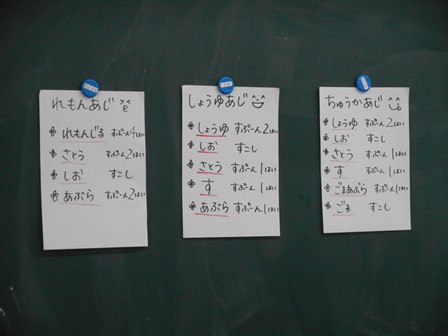 れもんあじ
れもんじる すぷーん4はい
さとう すぷーん2はい
しお すこし
あぶら すぷーん2はい
しょうゆあじ
しょうゆ すぷーん2はい
しお すこし
さとう すぷーん1はい
す すぷーん1はい
あぶら すぷーん1はい
ちゅうかあじ
しょうゆ すぷーん2はい
しお すこし
さとう すぷーん1はい
す すぷーん1はい
ごまあぶら すぷーん1はい
ごま すこし